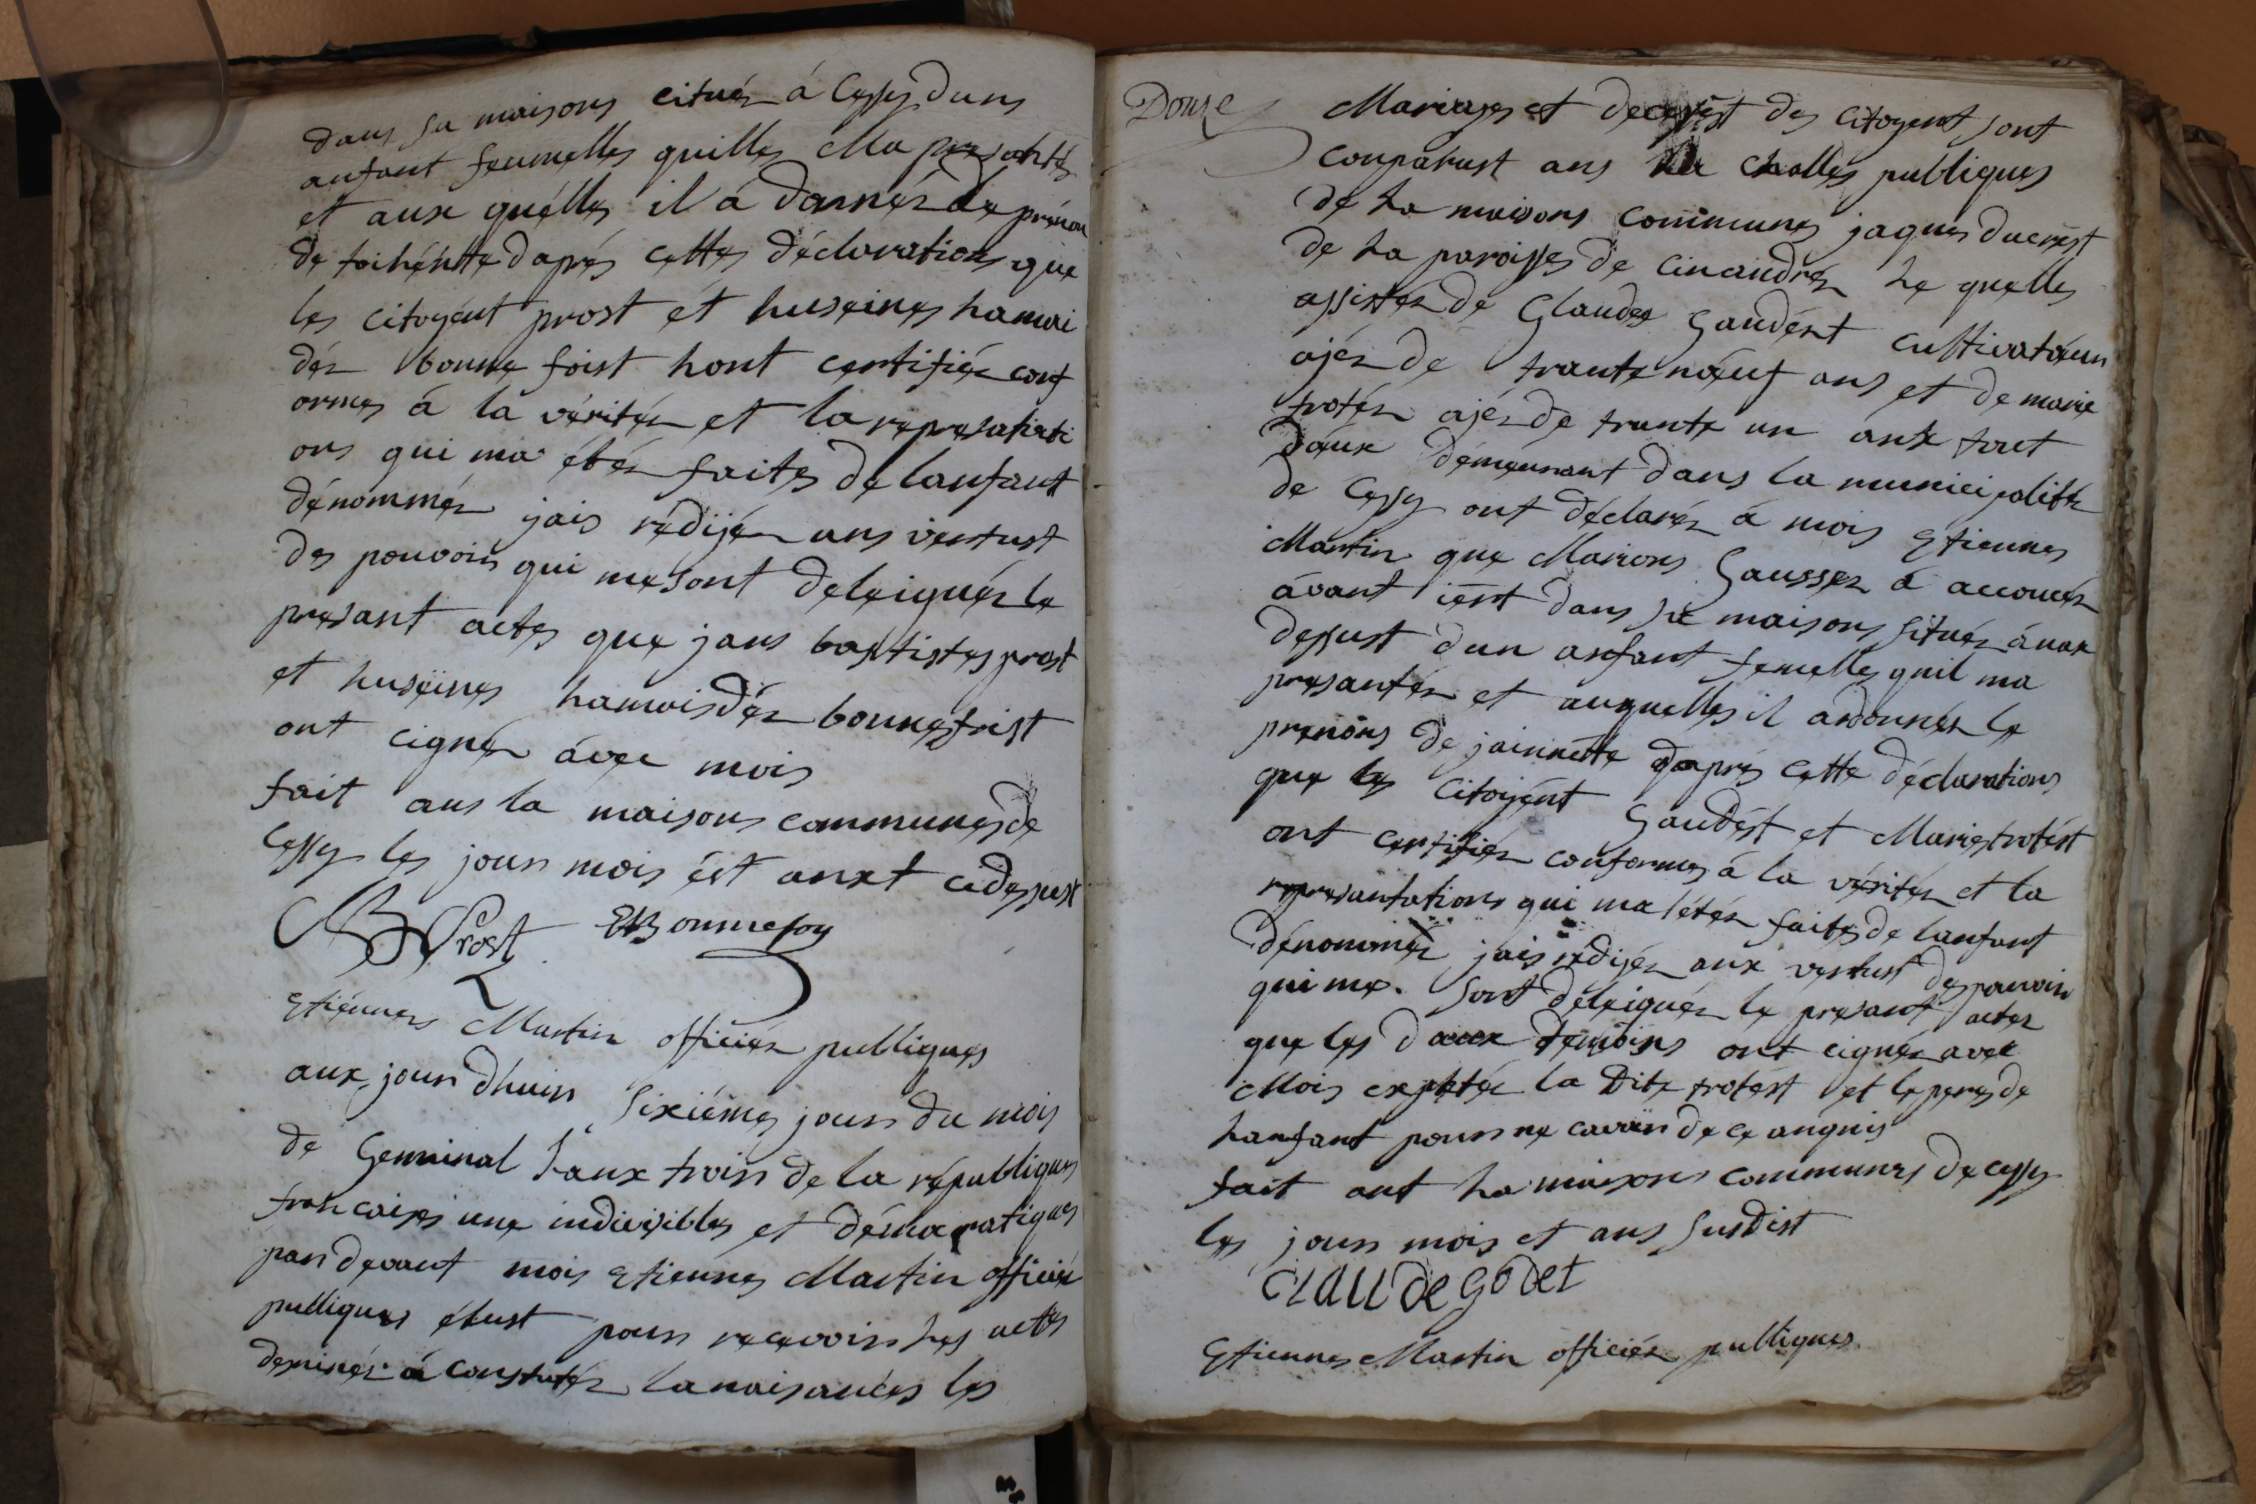 dans sa maisons cituéz á Cessy duns
anfant feumelles quilles Ma presanté
et aux quélles il á donnéz le prénon
de d'aprés cettes déclarations que
les citoyént prost et huseines hamai
déz bonne foist hont certifiéz conf
ormes á la véritéz et la represatati
ons qui ma étéz faites de lanfant
dénomméz jais rédijéz ans vertust
des pouvoirs qui me sont deleiguéz le
presant actes que jans baptistes prost
et huseines hamoisdéz bonnesfoist
ont cignéz ávec mois
fait ans la maisons communes de
Cessy les jours mois ét anxt cidessust
Prost EBonnefoy
Etiénnes Martin officiéz publiques
aux jourdhuis Sixiémes jours du mois
de Germinal Lanx trois de la républiques
francaises une indivisibles et démocratiques
par devant mois Etiennes Martin officiéz
publiques élust pours recevoirs les actes
destinéz á constatéz la naisances les
Douze
Mariages et décest des citoyent sont
comparust ans challes publiques
de la maisons communes jaques ducrest
de la paroisses de le quelles
assistéz de Glaudes Gaudént cultivateurs
ajéz de trante nœuf ans et de marie
trotéz ajéz de trante un anx tout
daux démeurant dans la municipalitéz
de Cessy ont déclaréz á mois Etiennes
Martin que Marions Gaussez á accouéz
ávant iért dans sa maisons situéz
dessust dun anfant femelles quil ma
presantéz et auquelles il adonnéz le
prenons de jainnétte daprés cette déclarations
que les Citoyént Gaudést et Maries trotést
ont certifiéz conformes á la véritéz et la
représantations qui ma létéz faites de lanfant
dénomméz jais redijéz aux vertust des pouvoirs
qui me. sont déleiguéz le presant actes
que les daux témoins ont cignéz avec
Mois exseptéz la Dite trotést et le peres de
hanfant pours ne cavoirs de ce anquis
fait ant ha maisons communes de cessy
les jours mois et ans susdist
CLAUDe GODeT
Etiennes Martin officiéz publiques